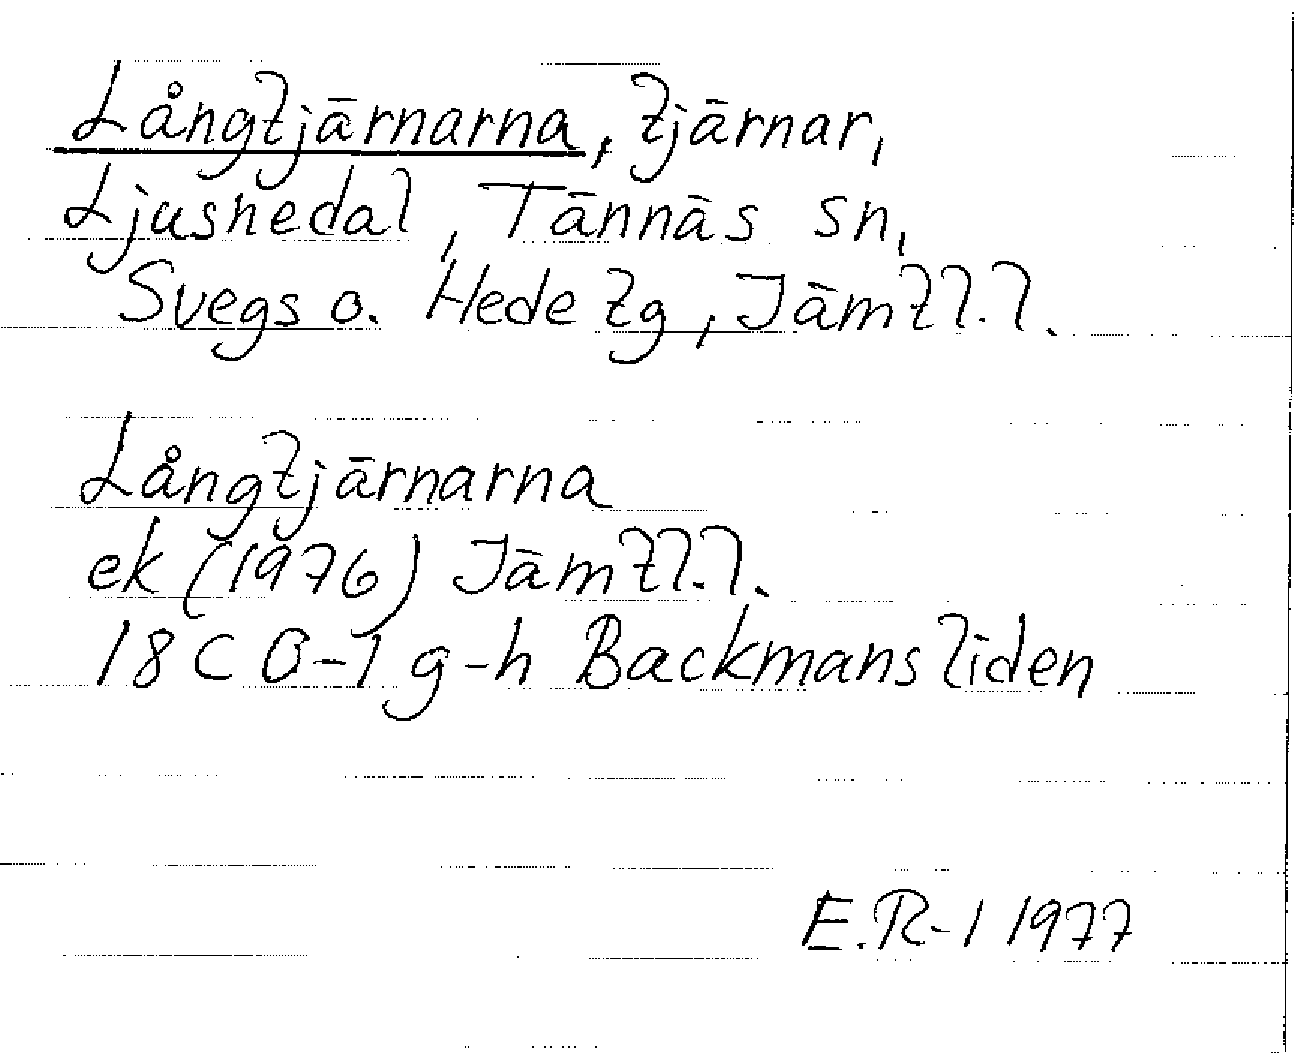 Långtjärnarna, tjärnar,
Ljusnedal, Tännäs sn,
Svegs o. Hede tg, Jämtl.l.
Långtjärnarna
ek (1976) Jämtl.l.
18C 0-1 g-h Backmansliden
E.R-l 1977